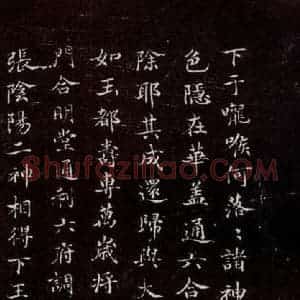 下于嚨喉何落〻諸神
色隱在華蓋通六合
除耶其成還歸與大
如玉都壽專萬歲將
門合明堂通利六府調
張陰陽二神相得下王
Shufaziliao.com